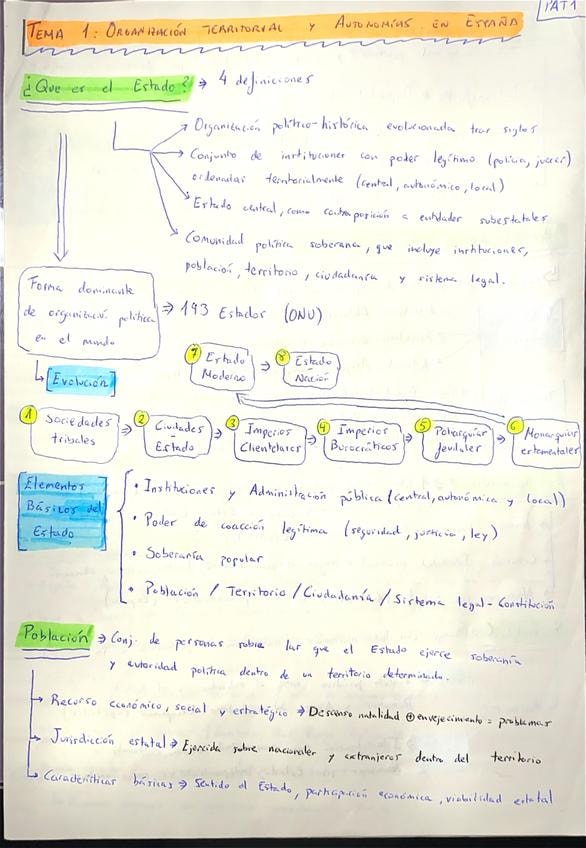 PAT1
TEMA 1: ORGANIZACIÓN TERRITORIAL Y AUTONOMÍAS EN ESPAÑA
¿Que es el Estado? → 4 definiciones
→ Organización político-histórica evolucionada tras siglos
→ Conjunto de instituciones con poder legítimo (policía, jueces)
ordenadas territorialmente (central, autonómico, local)
→ Estado central, como contraposición a entidades subestatales
→ Comunidad política soberana, que incluye instituciones,
población, territorio, ciudadanía y sistema legal.
Forma dominante
de organización política
en el mundo
⇒ 193 Estados (ONU)
↳ [Evolución]
1 Sociedades
tribales
⇒ 2 Ciudades
- Estado
⇒ 3 Imperios
Clientelares
⇒ 4 Imperios
Burocráticos
⇒ 5 Poliarquías
feudales
⇒ 6 Monarquías
estamentales
7 Estado
Moderno
⇒ 8 Estado
Nación
Elementos
Básicos del
Estado
• Instituciones y Administración pública (central, autonómica y local)
• Poder de coacción legítima (seguridad, justicia, ley)
• Soberanía popular
• Población / Territorio / Ciudadanía / Sistema legal - Constitución
Población ⇒ Conj. de personas sobre las que el Estado ejerce soberanía
y autoridad política dentro de un territorio determinado.
→ Recurso económico, social y estratégico ⇒ Descenso natalidad ⊕ envejecimiento = problemas
→ Jurisdicción estatal ⇒ Ejercida sobre nacionales y extranjeros dentro del territorio
↳ Características básicas ⇒ Sentido el Estado, participación económica, viabilidad estatal